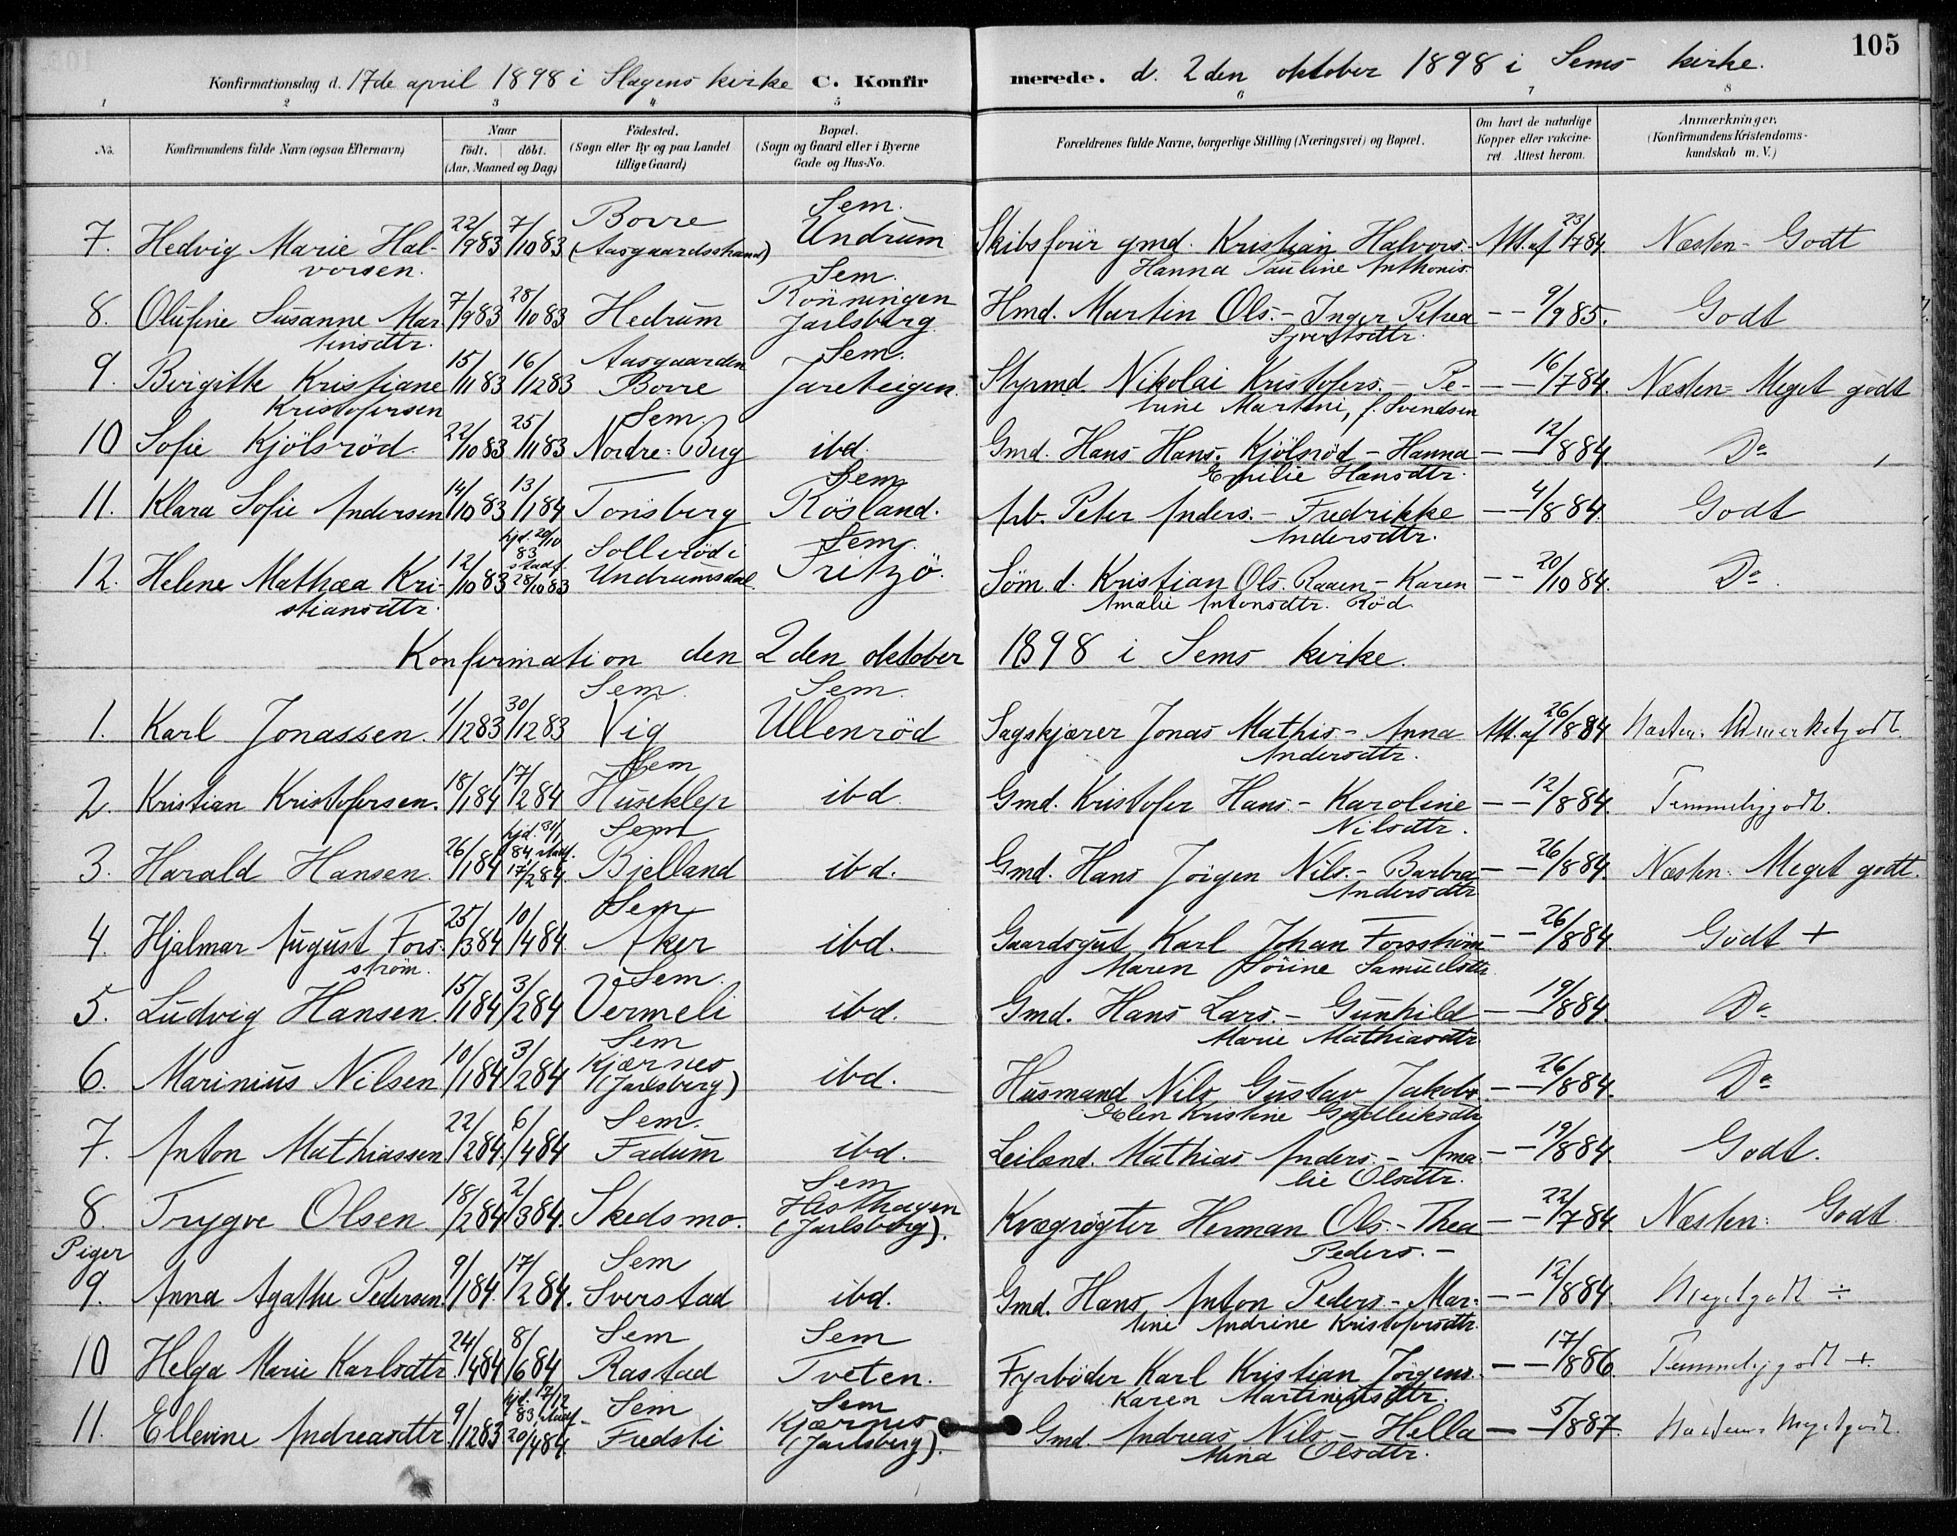 105
Konfirmationsdag d. 17de april 1898 i Slagens kirke C. Konfirmerede. d. 2den oktober 1898 i Sems kirke.
1 2 3 4 5 6 7 8
No. Konfirmandens fulde Navn (ogsaa Efternavn) Naar født. døbt. (Aar, Maaned og Dag) Fødested. (Sogn eller By og paa Landet tillige Gaard) Bopæl. (Sogn og Gaard eller i Byerne Gade og Hus-No. Forældrenes fulde Navne, borgerlige Stilling (Næringsvei) og Bopæl. Om havt de naturlige Kopper eller vakcineret Attest herom. Anmærkninger. (Konfirmandens Kristendomskundskab m. V.)
Borre Sem.
7. Hedvig Marie Hal- 22/9 83 7/10 83 (Aasgaardsstrand) Undrum Skibsfører gmd. Kristian Halvors.- Att. af 23/7 84. Næsten - Godt
vorsen. Hanna Pauline Anthonis.
Sem. Rönningen
8. Olufine Susanne Mar 7/9 83 28/10 83 Hedrum Jarlsberg Hmd. Martin Ols.- Inger Petrea - - 9/9 85. Godt
tinsdtr. Syvertsdtr.
Aasgaarden Sem.
9. Birgitte Kristiane 15/11 83 16/12 83 Borre Jareteigen. Styrmd. Nikolai Kristofers. - Pe- - - 16/7 84. Næsten - Meget godt
Kristofersen trine Martine, f. Svendsen
Sem.
10 Sofie Kjölsröd. 22/10 83 25/11 83 Nordre: Berg ibd. Gmd. Hans Hans. Kjölsröd - Hanna - - 12/8 84. Do
Emilie Hansdtr.
Sem
11. Klara Sofie Andersen 14/10 83 13/1 84 Tönsberg Rösland. Arb. Peter Anders. - Fredrikke - - 4/8 84. Godt
Andersdtr.
hjd. 20/10 83 stadf. Solleröd i Sem.
12. Helene Mathea Kri- 12/10 83 28/10 83 Undrumsdal. Tretjö. Söm. d. Kristian Ols. Raaen - Karen - - 20/10 84. Do
stiansdtr. Amalie Antonsdtr. Röd
Konfirmation den 2den oktober 1898 i Sems kirke.
Sem. Sem.
1. Karl Jonassen. 1/12 83 30/12 83 Vig Ullenröd Sagskjærer Jonas Mathis. - Anna Att. af 26/8 84 Næsten: Udmerketgodt.
Andersdtr.
Sem
2. Kristian Kristofersen. 18/1 84 17/2 84 Huseklep ibd Gmd. Kristofer Hans. - Karoline - - 12/8 84. Temmeliggodt.
Nilsdtr.
hjd. 31/1 84, stadf. Sem
3. Harald Hansen. 26/1 84 17/2 84. Bjelland ibd. Gmd. Hans Jörgen Nils. - Barbra - - 26/8 84. Næsten: Meget godt.
Andersdtr
Sem
4. Hjalmar August Fors- 25/3 84 10/4 84. Aker ibd. Gaardsgut Karl Johan Forsström - - 26/8 84. Godt +
ström. Maren Sörine Samuelsdtr.
Sem.
5. Ludvig Hansen. 15/1 84 3/2 84 Vermeli ibd. Gmd. Hans Lars. - Gunhild - - 19/8 84. Do
Marie Mathiasdtr.
Sem Kjærnes
6. Marinius Nilsen 10/1 84 3/2 84 (Jarlsberg) ibd. Husmand Nils Gustav Jakobs. - - 26/8 84. Do
Elen Kristine Gulleiksdtr
Sem.
7. Anton Mathiassen 22/2 84. 6/4 84 Fadum ibd. Leiland. Mathias Anders. - Ama- - - 19/8 84. Godt.
lie Olsdtr.
Sem Hesthagen
8. Trygve Olsen 18/2 84 2/3 84. Skedsmo. (Jarlsberg). Kvægrøgter Herman Ols. - Thea - - 22/7 84. Næsten: Godt
Peders. -
Piger
Sem
9. Anna Agathe Pedersen. 9/1 84. 17/2 84. Sverstad ibd. Gmd. Hans Anton Peders. - Mar- - - 12/8 84. Megetgodt ÷
tine Andrine Kristofersdtr.
Sem Sem
10 Helga Marie Karlsdtr. 24/4 84 8/6 84 Rastad Tveten. Fyrbøder Karl Kristian Jörgens. - - 17/8 86 Temmeliggodt +
Karen Martiniusdtr.
hjd. 17/12 83, stadf. Sem Sem Kjærnes
11. Ellevine Andreasdtr 9/12 83 20/4 84. Fredsti (Jarlsberg). Gmd. Andreas Nils. - Hella - - 5/8 87. Næsten: Megetgodt.
Mina Olsdtr.